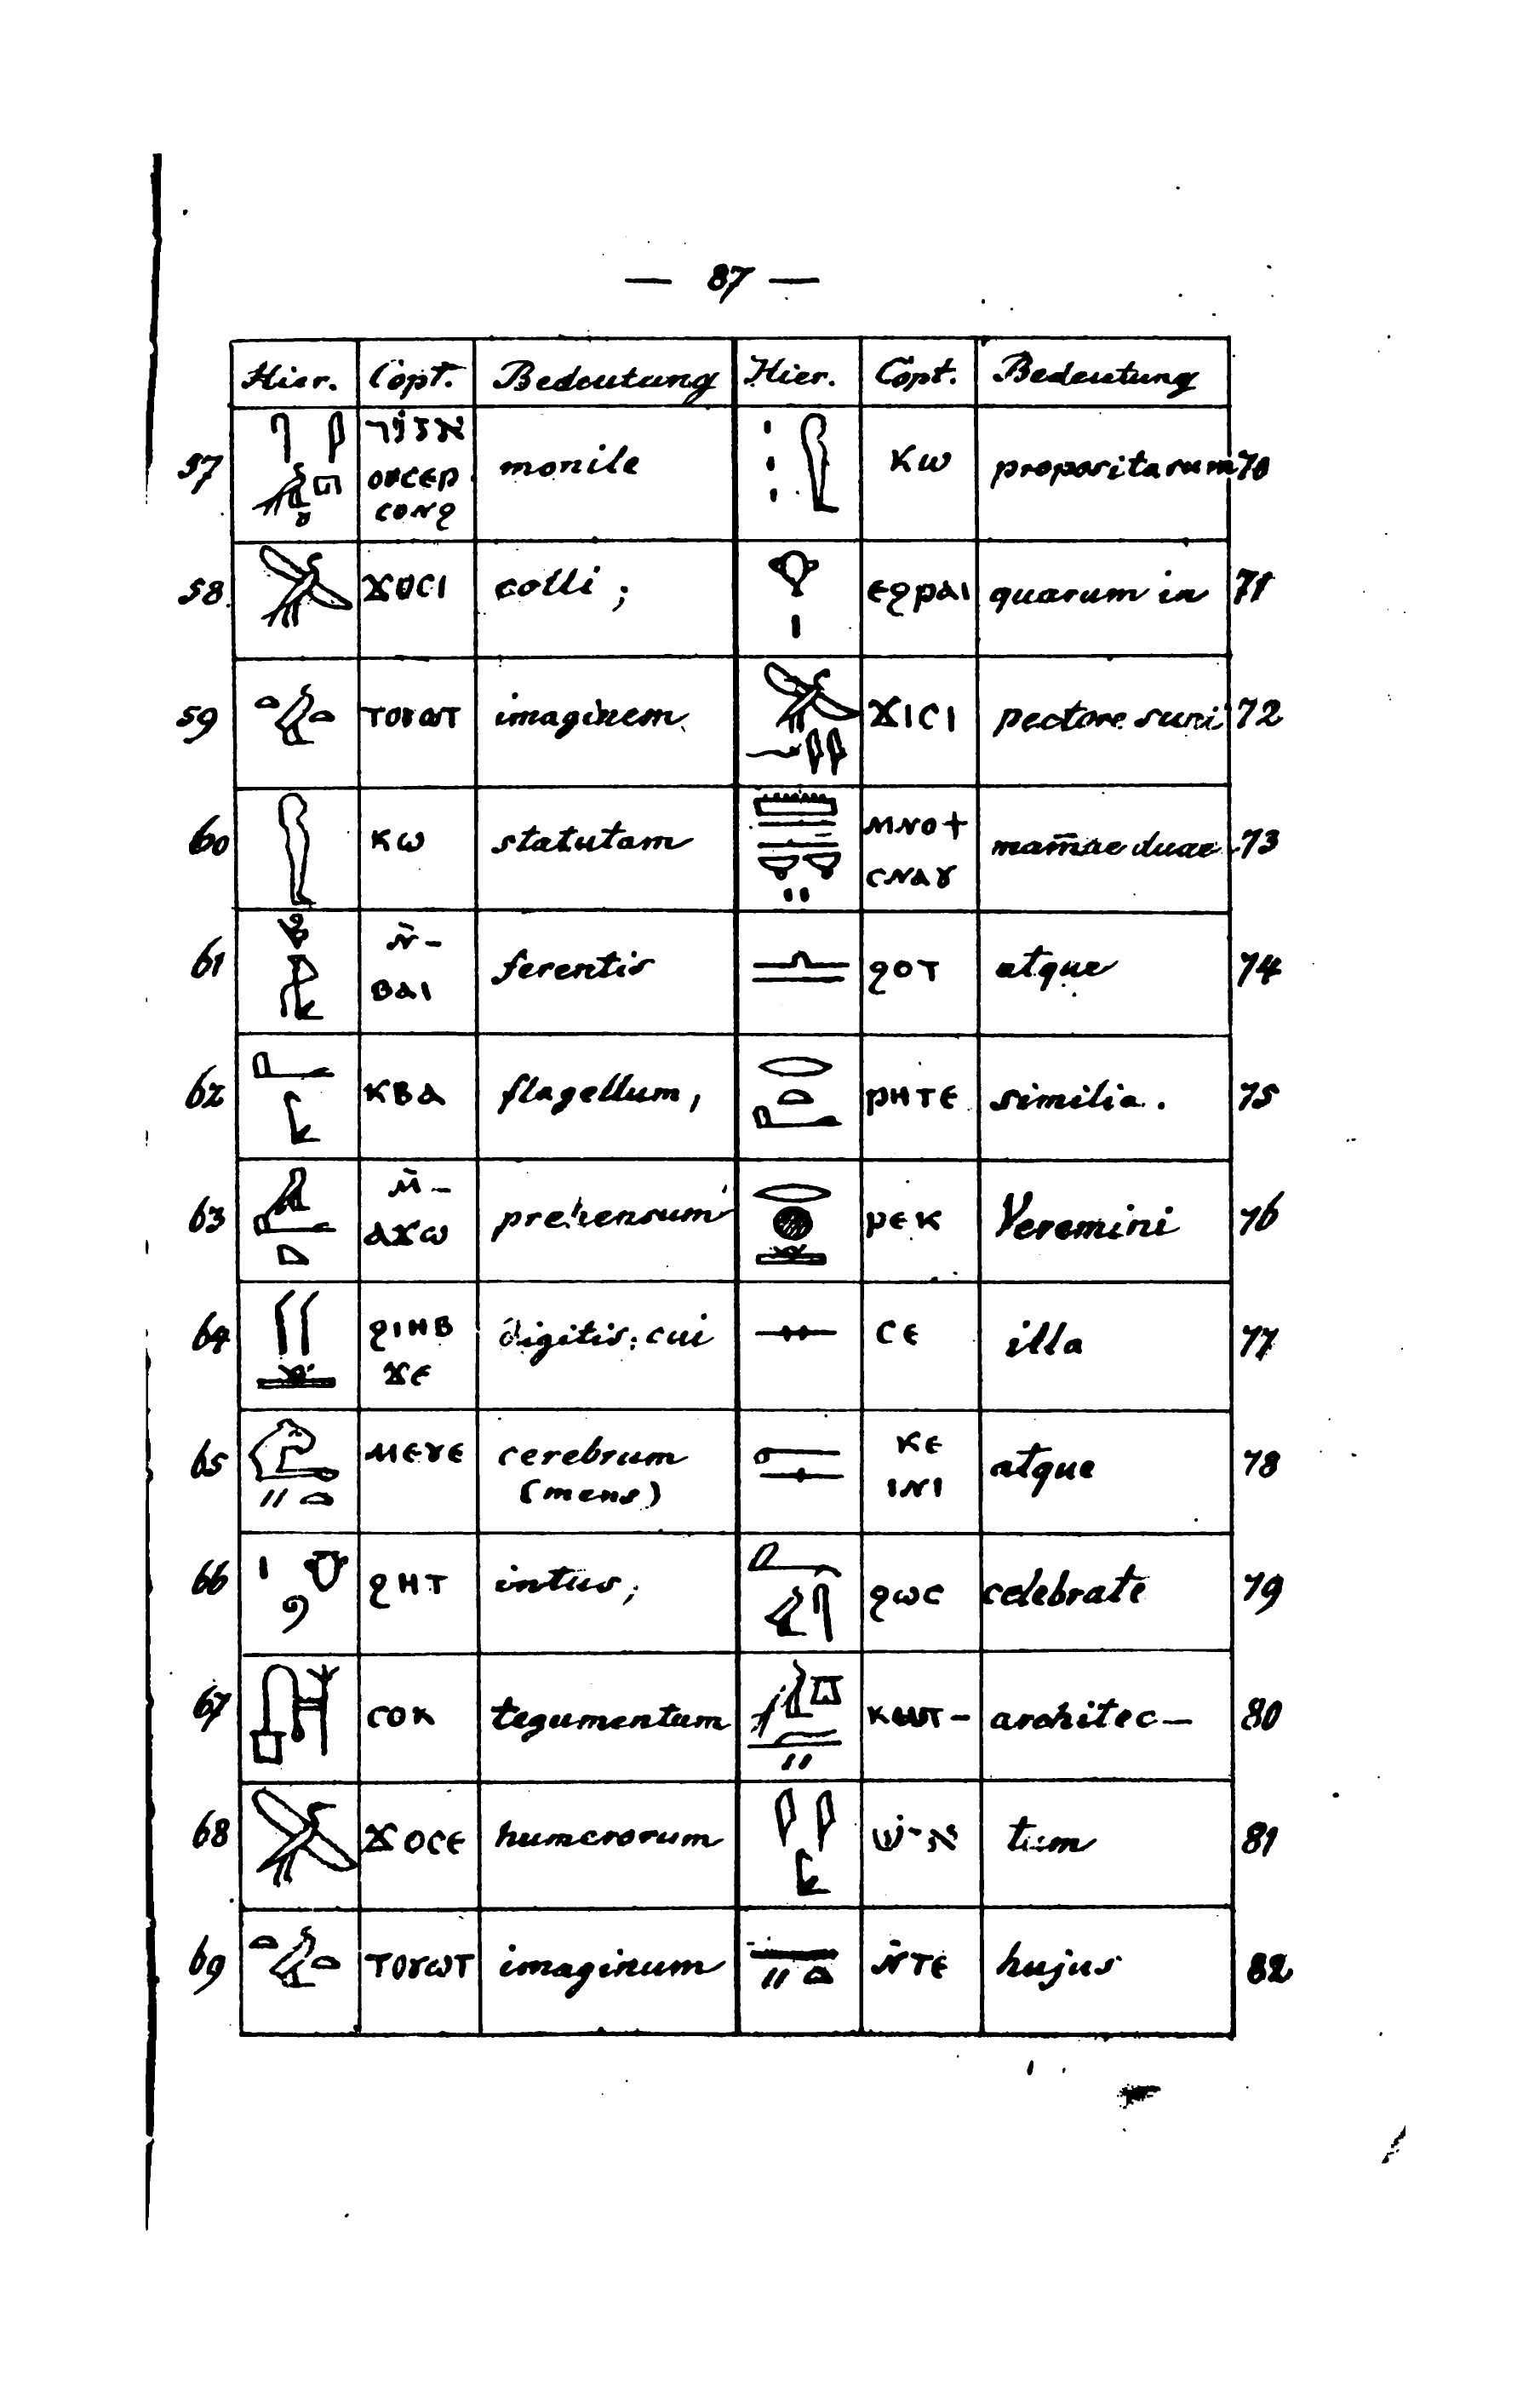 — 87 —
Hier. Copt. Bedeutung Hier. Copt. Bedeutung
57 אזור monile ⲕⲱ propositarum 70
ⲟⲩⲥⲉⲣ
ⲥⲟⲛϩ
58 ϫⲟⲥⲓ colli; ⲉϩⲣⲁⲓ quarum in 71
59 ⲧⲟⲩⲱⲧ imaginem ϫⲓⲥⲓ pectore 72
60 ⲕⲱ statutam ⲙⲛⲟϯ mam̄ae duae 73
ⲥⲛⲁⲩ
61 ⲛ̄- ferentis ϩⲟⲧ atque 74
ⲃⲁⲓ
62 ⲕⲃⲁ flagellum, ⲣⲏⲧⲉ similia. 75
63 ⲙ̄- prehensum ⲣⲉⲕ Veremini 76
ⲁϫⲱ
64 ϩⲓⲏⲃ digitis; cui ⲥⲉ illa 77
ϫⲉ
65 ⲙⲉⲩⲉ cerebrum ⲕⲉ atque 78
(mens) ⲓⲛⲓ
66 ϩⲏⲧ intus; ϩⲱⲥ celebrate 79
67 ⲥⲟⲕ tegumentum ⲕⲱⲧ- architec- 80
68 ϫⲟⲥⲉ humerorum א-ש tum 81
69 ⲧⲟⲩⲱⲧ imaginum ⲛ̄ⲧⲉ hujus 82